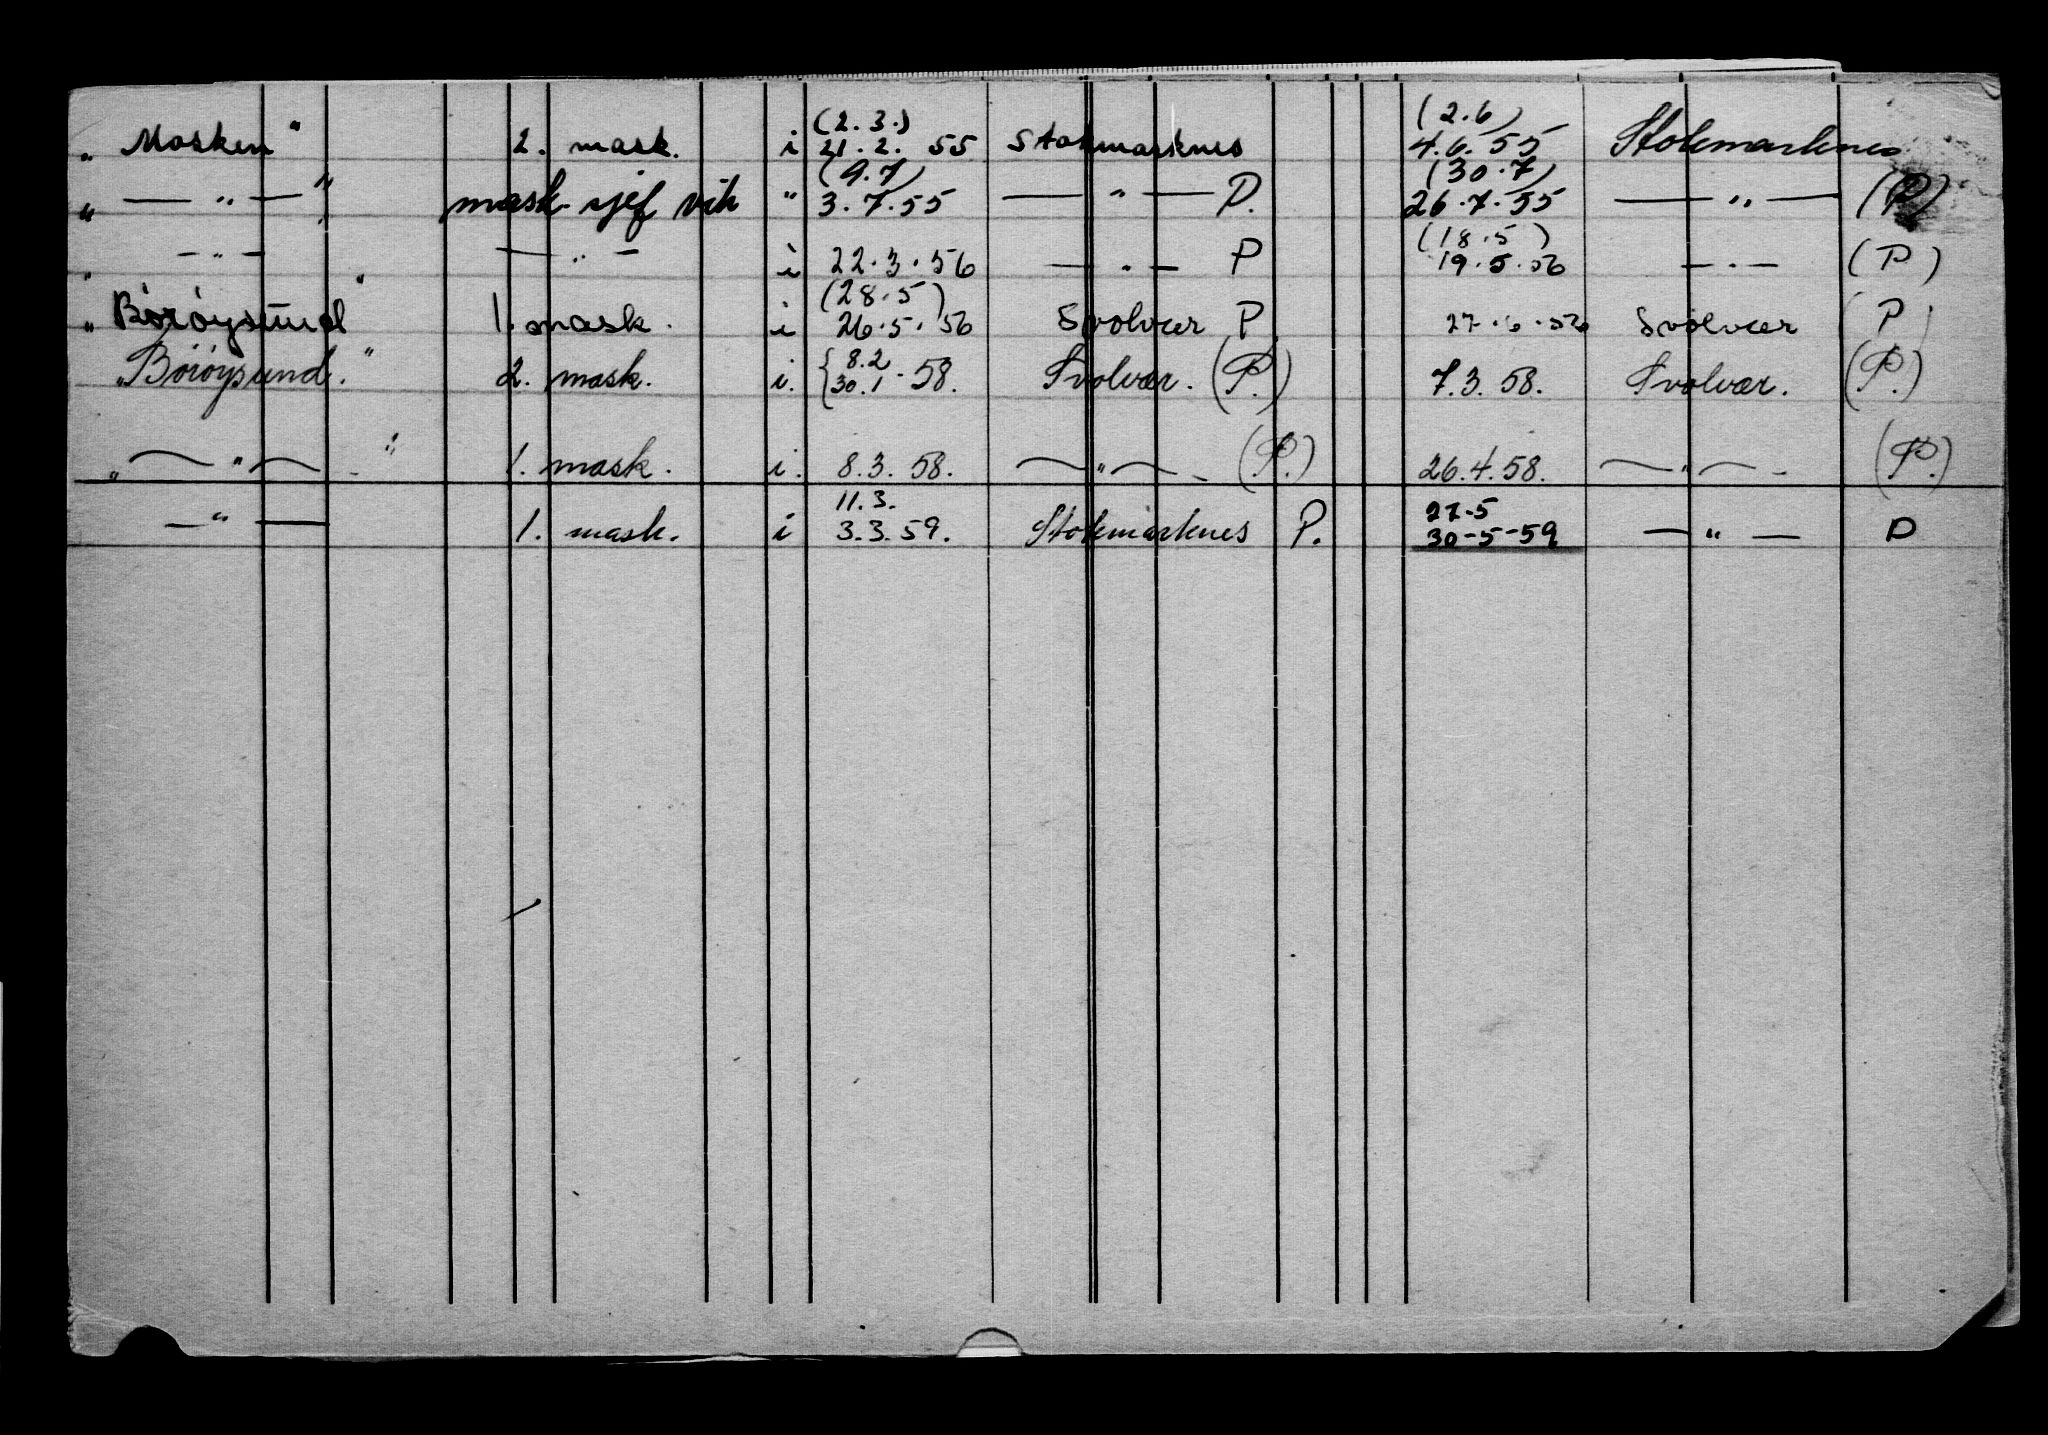 (2.3.) (2.6)
„ Mosken " 2. mask. i 21.2. 55 Stokmarknes 4.6. 55 Stokmarknes
(9.7) (30.7)
„ — " — " mask. sjef vik " 3.7.55 — " — P. 26.7.55 — " — (P)
(18.5)
„ — " — " — " — i 22.3.56 — " — P 19.5.56 — " — (P)
(28.5)
„ Börøysund 1. mask. i 26.5.56 Svolvær P 27.6.56 Svolvær (P)
8.2
„ Börøysund." 2. mask. i. {30.1 . 58. Svolvær. (P.) 7.3. 58. Svolvær. (P.)
„ — " — " 1. mask. i. 8.3. 58. — " — (P.) 26.4.58. — " — (P.)
11.3. 27.5
— " — 1. mask. i 3.3.59. Stokmarknes P. 30-5-59 — " — P